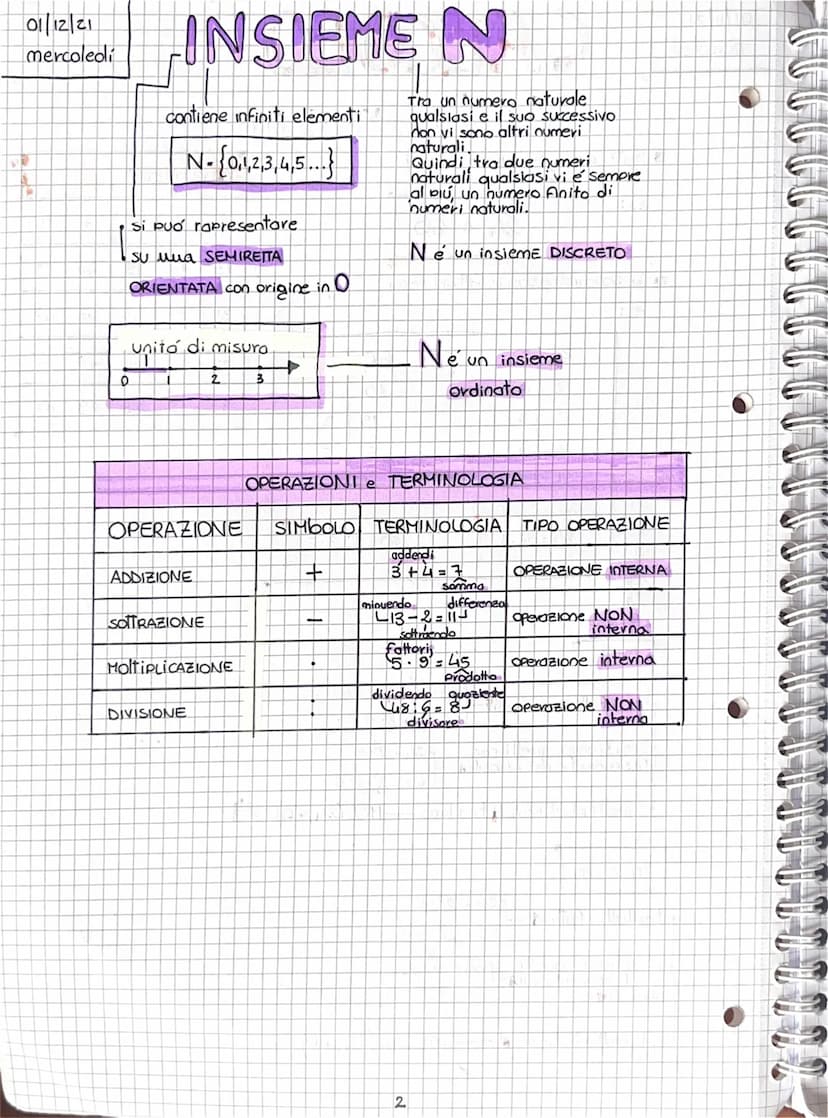 01/12/21
mercoledí
INSIEME N
contiene infiniti elementi
N={0,1,2,3,4,5...}
si puó rapresentare
su una SEMIRETTA
ORIENTATA con origine in 0
Tra un numero naturale
qualsiasi e il suo successivo
non vi sono altri numeri
naturali.
Quindi, tra due numeri
naturali qualsiasi vi é sempre
al piú, un numero finito di
numeri naturali.
N é un insieme DISCRETO
unitá di misura
0 1 2 3
N é un insieme
ordinato
OPERAZIONI e TERMINOLOGIA
OPERAZIONE SIMBOLO TERMINOLOGIA TIPO OPERAZIONE
addendi
ADDIZIONE + 3+4=7 OPERAZIONE INTERNA
somma
minuendo differenza
SOTTRAZIONE - 13-2=11 operazione NON
sottraendo interna
fattori
MOLTIPLICAZIONE · 5·9=45 operazione interna
prodotto
dividendo quoziente
DIVISIONE : 48:6=8 operazione NON
divisore interna
2